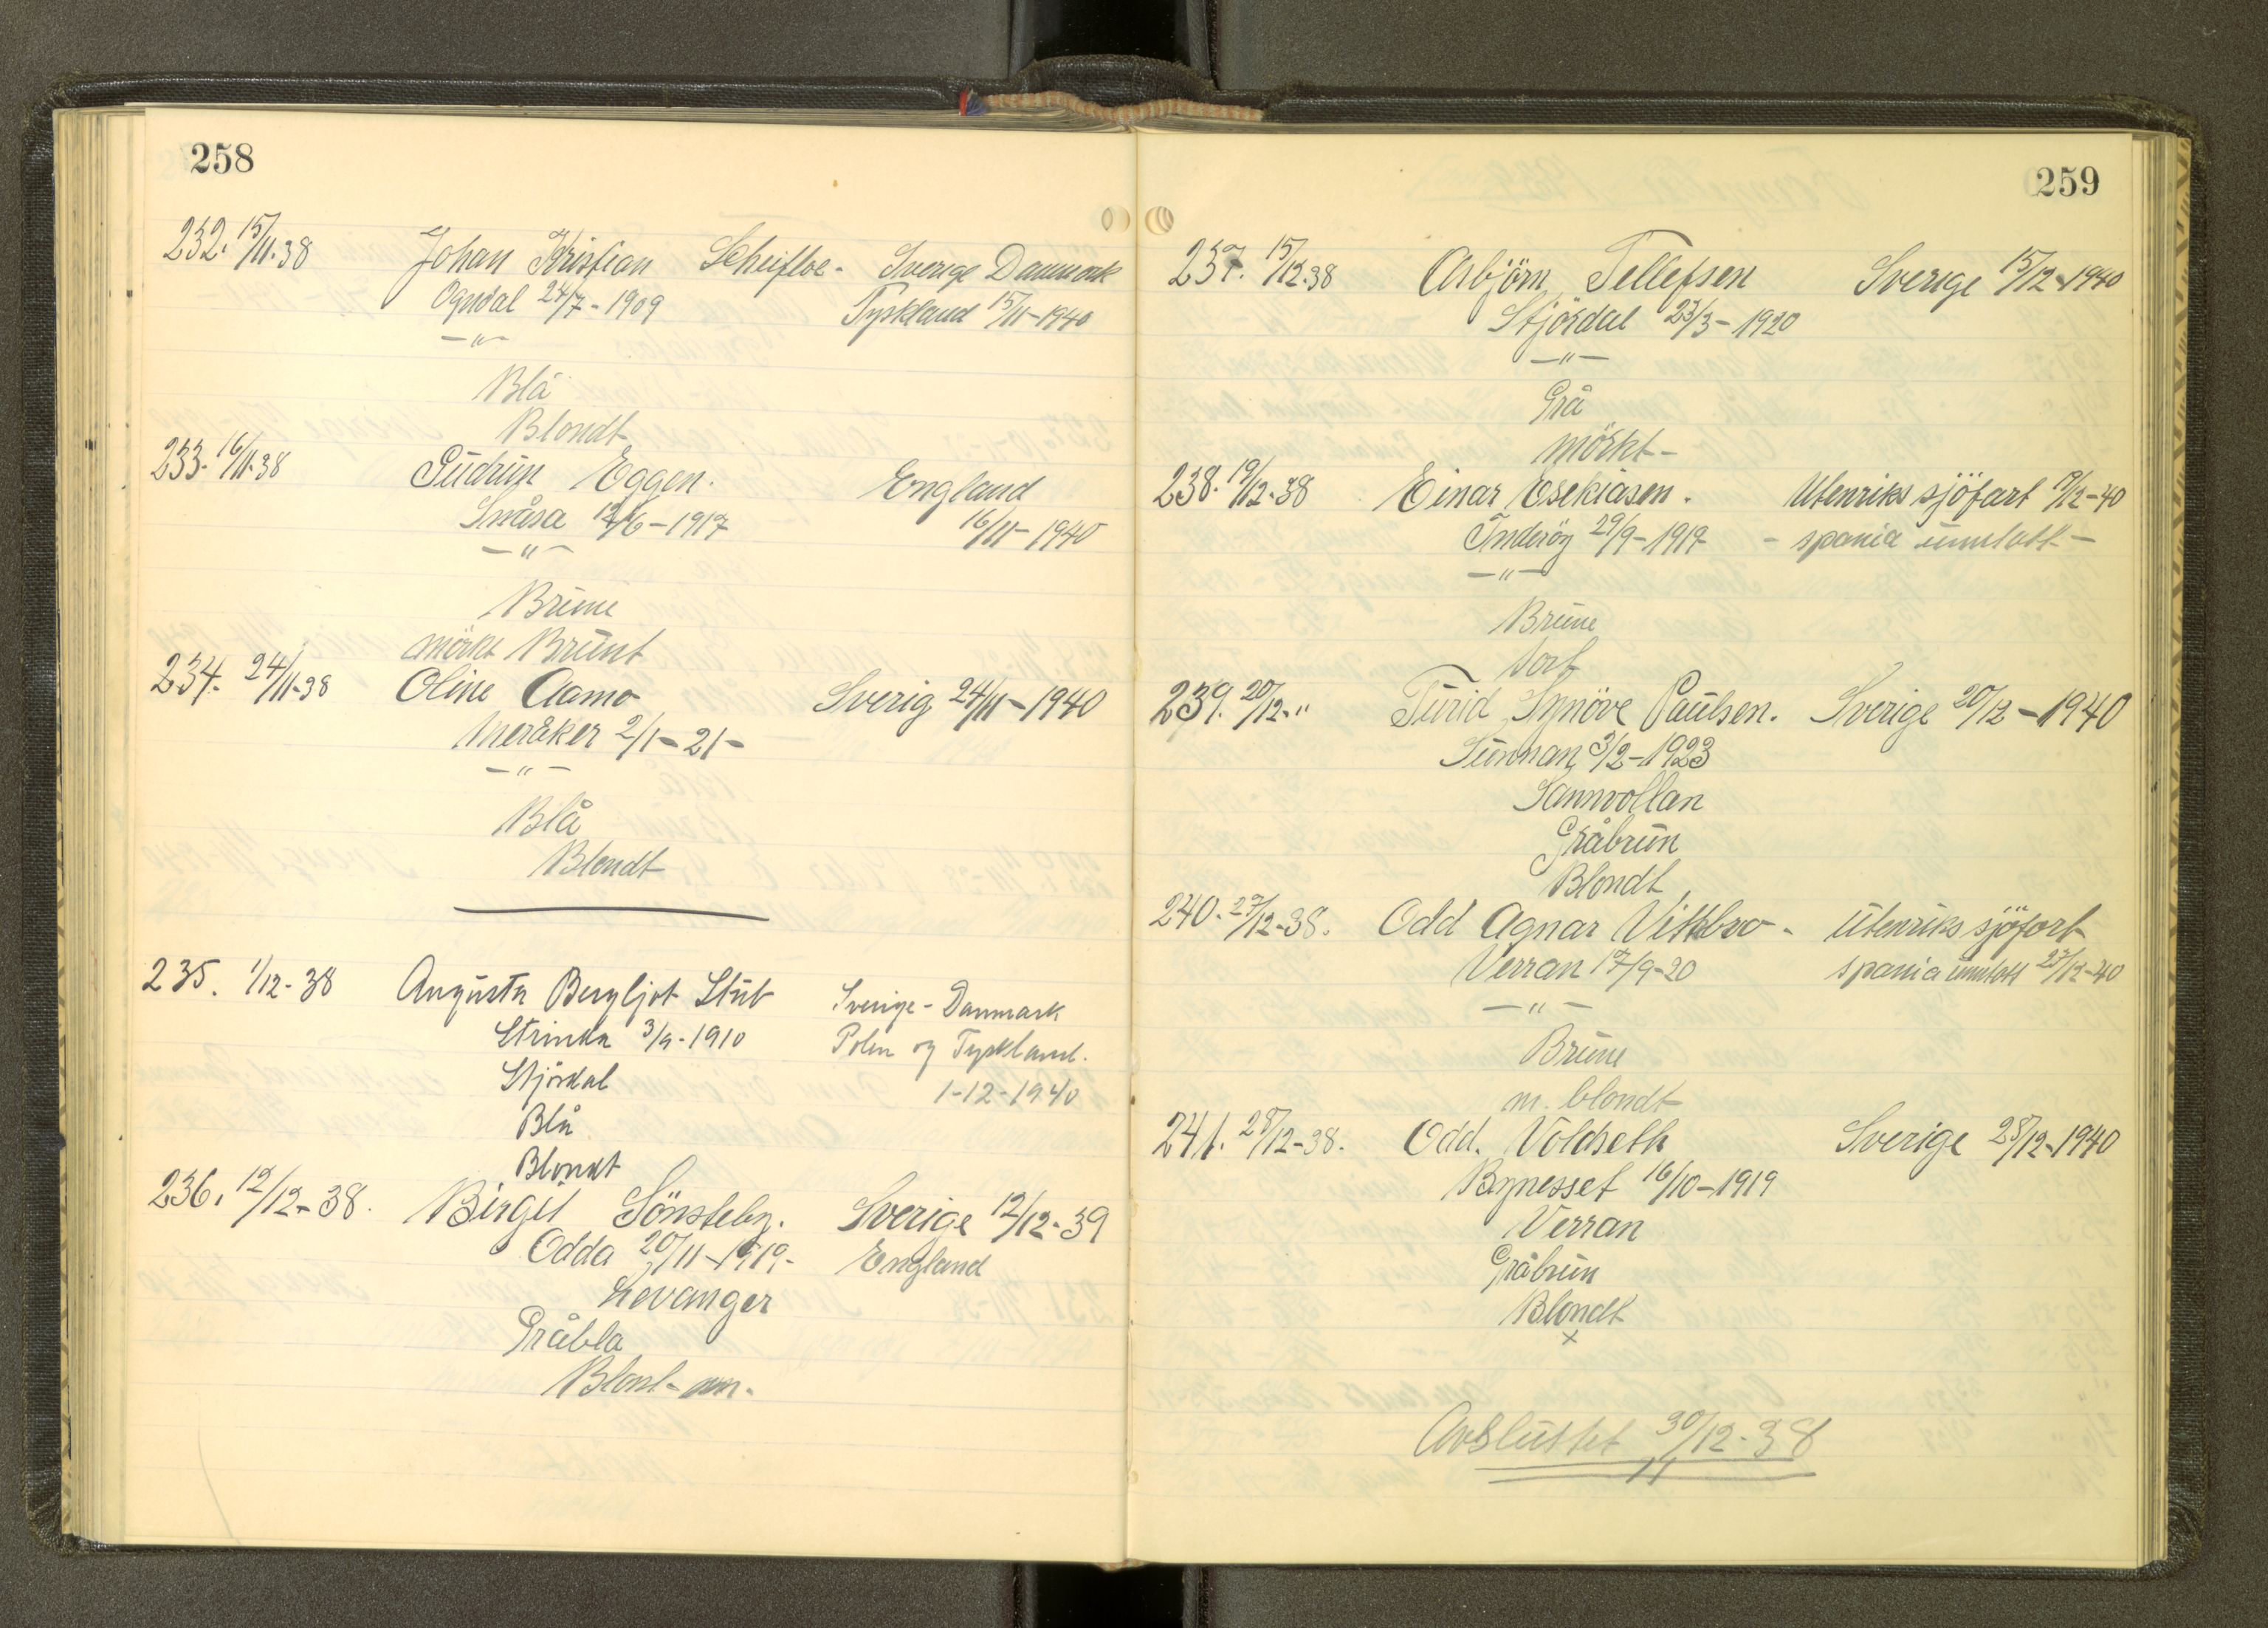 258
232. 15/11-38 Johan Kristian Scheifloe - Sverige Danmark
Ogndal 24/7 - 1909 Tyskland 15/11-1940
— " —
Blå
Blondt
233. 16/11-38 Gudrun Eggen. England
Snåsa 12/6 - 1917 16/11- 1940
— " —
Brune
mörkt Brunt
234. 24/11-38 Oline Aamo Sverig 24/11-1940
Meråker 2/1-21-
— " —
Blå
Blondt
235. 1/12-38 Augusta Bergljot Stub Sverige - Danmark
Strinda 3/9-1910 Polen og Tyskland.
Stjördal 1-12-1940
Blå
Blondt
236. 12/12-38. Birgit Sönsteby. Sverige 12/12-39
Odda 20/11-1919- England
Levanger
Gråbla
Blond-
259
237. 15/12-38 Asbjörn Tellefsen Sverige 15/12-1940
Stjördal 23/3-1920
— " —
Grå
mörkt-
238. 19/12-38 Einar Esekiasen. Utenriks sjöfart 19/12-40
Inderöy 29/9-1919 - spania unntatt -
— " —
Brune
sort
239. 20/12-" Turid Synöve Paulsen. Sverige 20/12-1940
Sunnan 3/2-1923
Sannvollan
Gråbrun
Blondt
240. 27/12-38. Odd Agnar Vitkbro - Utenriks sjöfart
Verran 17/9-20 spania unntatt 27/12-40
— " —
Brune
m. blondt
241. 28/12-38. Odd. Voldseth Sverige 28/12-1940
Bynesset 16/10-1919
Verran
Gråbrun
Blondt
x
Avsluttet 30/12-38